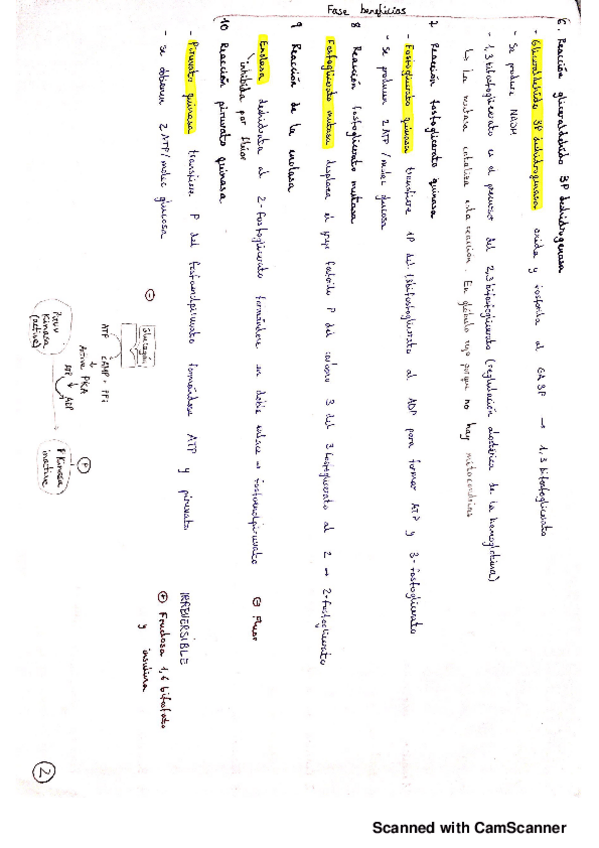 Fase beneficios
6. Reacción gliceraldehído 3P deshidrogenasa
- Gliceraldehído 3P deshidrogenasa oxida y fosforila al GA3P → 1,3 bifosfoglicerato
- Se produce NADH
- 1,3 bifosfoglicerato es el precursor del 2,3 bifosfoglicerato (regulación alostérica de la hemoglobina)
↳ La mutasa cataliza esta reacción. En glóbulo rojo porque no hay mitocondrias
7 Reacción fosfoglicerato quinasa
- Fosfoglicerato quinasa transfiere 1P del 1,3bifosfoglicerato al ADP para formar ATP y 3-fosfoglicerato
- Se producen 2 ATP/molec glucosa
8 Reacción fosfoglicerato mutasa
Fosfoglicerato mutasa desplaza el grupo fosforilo P del carbono 3 del 3 fosfoglicerato al 2 → 2-fosfoglicerato
9 Reacción de la enolasa
Enolasa deshidrata al 2-fosfoglicerato formándose un doble enlace → fosfoenolpiruvato ⊖ Fluor
inhibida por flúor
10 Reacción piruvato quinasa
- Piruvato quinasa transfiere P del fosfoenolpiruvato formándose ATP y piruvato IRREVERSIBLE
- se obtienen 2 ATP/molec glucosa ⊕ Fructosa 1,6 bifosfato
y insulina
⊖
Glucagón
ATP cAMP + PPi
Activa PKA
ATP ADP
Piruv Kinasa (activa)
P
P Kinasa inactiva
2
Scanned with CamScanner